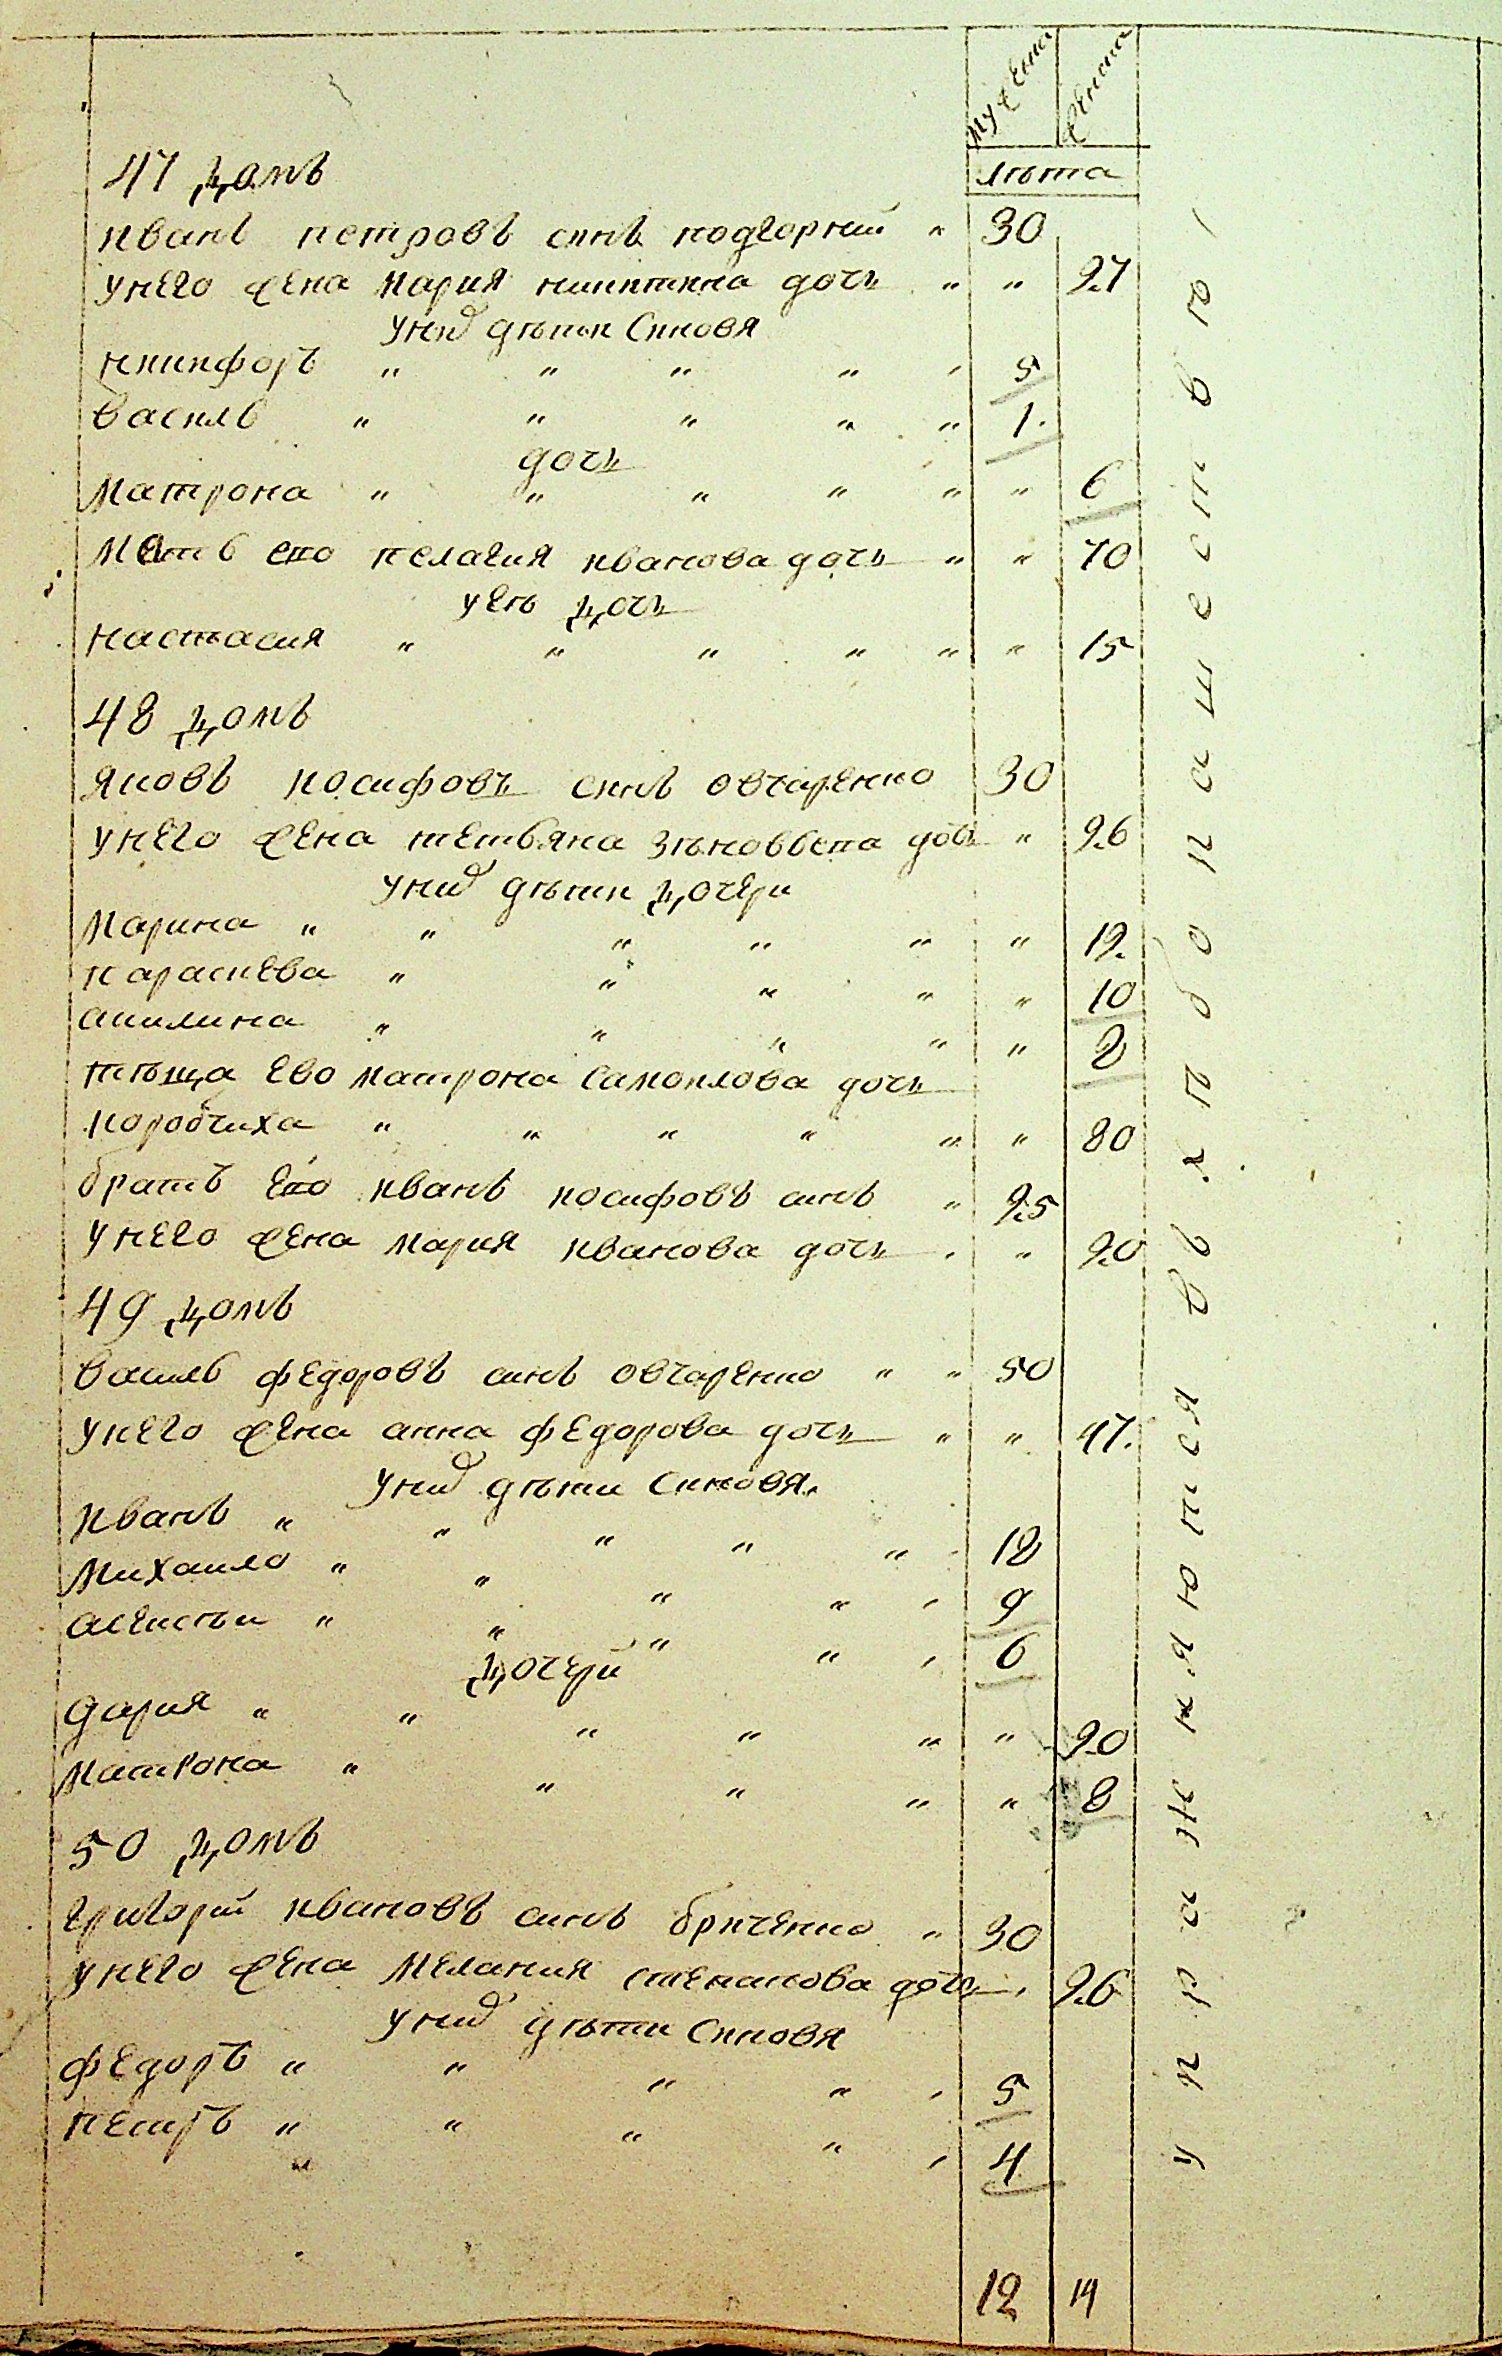 мужеска женска
лѣта
47 домъ
иванъ петровъ синъ подгорний " 30
унего жена мария никитина дочь " " 27
уних дѣти Синовя
никифоръ " " " " 5
василь " " " " " 1.
дочь
матрона " " " " " " 6
мать его пелагия иванова дочь " " 70
уеѣ дочь
настасия " " " " " " 15
48 домъ
яковъ иосифовъ синъ овчаренко 30
унего жена тетьяна зѣновьева дочь " 26
уних дѣти дочери
марина " " " " " " 12.
параскева " " " " " 10
акилина " " " " " 2
тѣща ево матрона самоилова дочь
коробчиха " " " " " " 80
братъ его иванъ иосифовъ синъ " 25
унего жена мария иванова дочь " " 20
49 домъ
василь федоровъ синъ овчаренко " " 50
унего жена анна федорова дочь " " 47.
уних дѣти Синовя
иванъ " " " " " 12
михаило " " " " 9
алексѣи " " " " 6
дочери
дария " " " " " " 20
матрона " " " " " 8
50 домъ
григорий ивановъ синъ бриченко " 30
унего жена мелания степанова дочь 26
уних дѣти Синовя
федоръ " " " " 5
петръ " " " " 4
12 14
упражняются въ хлѣбопашествѣ